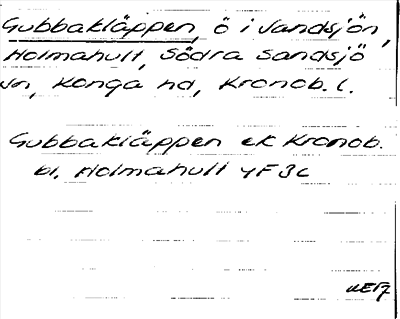 Gubbakläppen, ö i Sandsjön,
Holmahult, Södra Sandsjö
sn, Konga hd, Kronob. l.
Gubbakläppen ek Kronob.
bl. Holmahult 4F3c